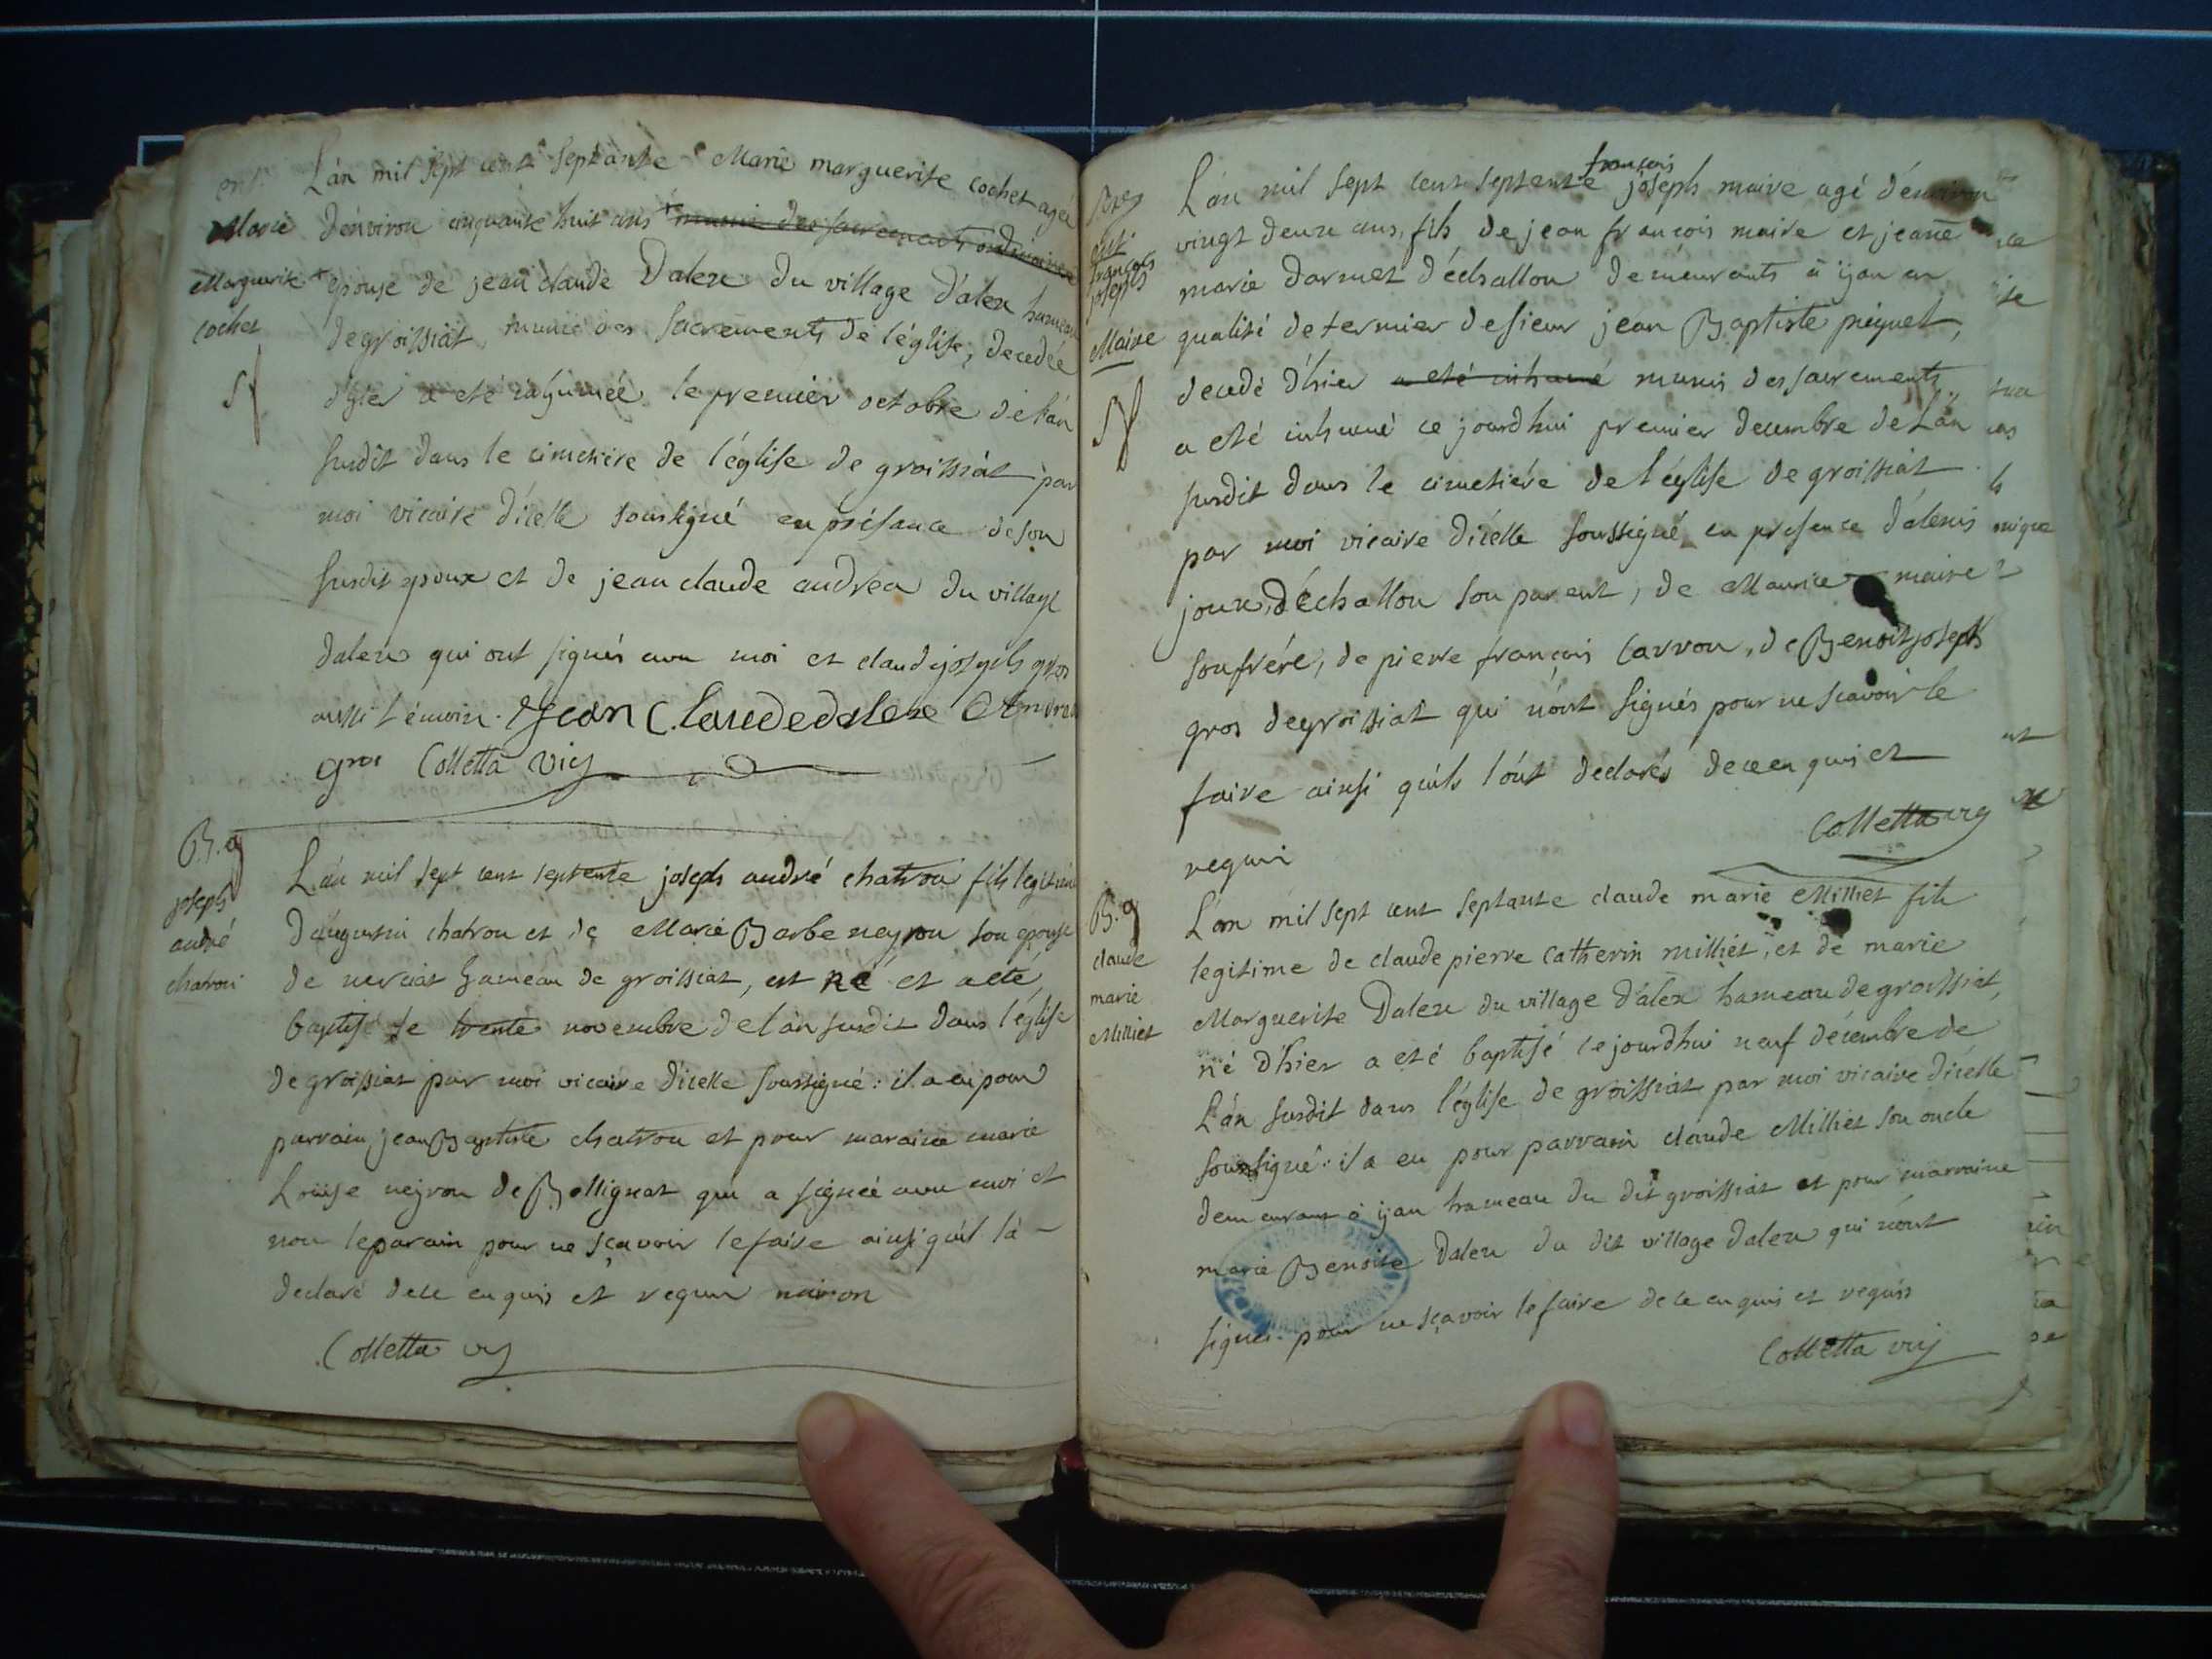 ent.
Marie
Marguerite
cochet
L'an mil sept cent septante Marie marguerite cochet agée
d'environ cinquante huit ans munie des sacrements ordinaires
epouse de jean claude Dalex du village d'alex hameau
de groissiat, munie des sacrements de l'église, decedée
d'hier a eté inhumée le premier octobre de l'an
susdit dans le cimetière de l'église de groissiat par
moi vicaire d'icelle soussigné en présance de son
susdit epoux et de jean claude andrea du village
dalex qui ont signés avec moi et claude joseph gros
aussi témoin. Jean Claude dalex Andrea
gros Colletta vic
B.
joseph
andré
chatron
L'an mil sept cent septente joseph andré chatron fils legitime
d'augustin chatron et de Marie Barbe neyron son epouse
de nerciat hameau de groissiat, est né et a eté
baptisé le trente novembre de l'an susdit dans l'église
de groissiat par moi vicaire d'icelle soussigné: il a eu pour
parrain jean Baptiste chatron et pour maraine marie
Louise neyron de Bellignat qui a signée avec moi et
non le parain pour ne sçavoir le faire ainsi qu'il l'a
declaré de ce enquis et requis neiron
Colletta vic
ent.
françois
joseph
Maire
L'an mil sept cent septente françois joseph maire agé d'environ
vingt deux ans, fils de jean françois maire et jeanne
marie darmet d'échallon demeurants a ijan en
qualité de fermier de sieur jean Baptiste piquet,
decedé d'hier a eté inhumé munis des sacrements
a eté inhumé ce jourdhui premier decembre de L'an
susdit dans le cimetière de l'église de groissiat
par moi vicaire d'icelle soussigné en presence d'alexis
joux d'échallon son parent, de Maurice maire
son frére, de pierre françois Carron, de Benoit joseph
gros de groissiat qui n'ont signés pour ne scavoir le
faire ainsi qu'ils l'ont declarés de ce enquis et
requi
Colletta vic
B.
claude
marie
Milliet
L'an mil sept cent septante claude marie Milliet fils
legitime de claude pierre Catherin milliet, et de marie
Marguerite Dalex du village d'alex hameau de groissiat,
né d'hier a eté baptisé ce jourdhui neuf décembre de
L'an susdit dans l'église de groissiat par moi vicaire d'icelle
soussigné: il a eu pour parrain claude Milliet son oncle
demeurant a ijan hameau du dit groissiat et pour marraine
marie Benoite Dalex du dit village dalex qui n'ont
signes pour ne sçavoir le faire de ce enquis et requis
Colletta vic